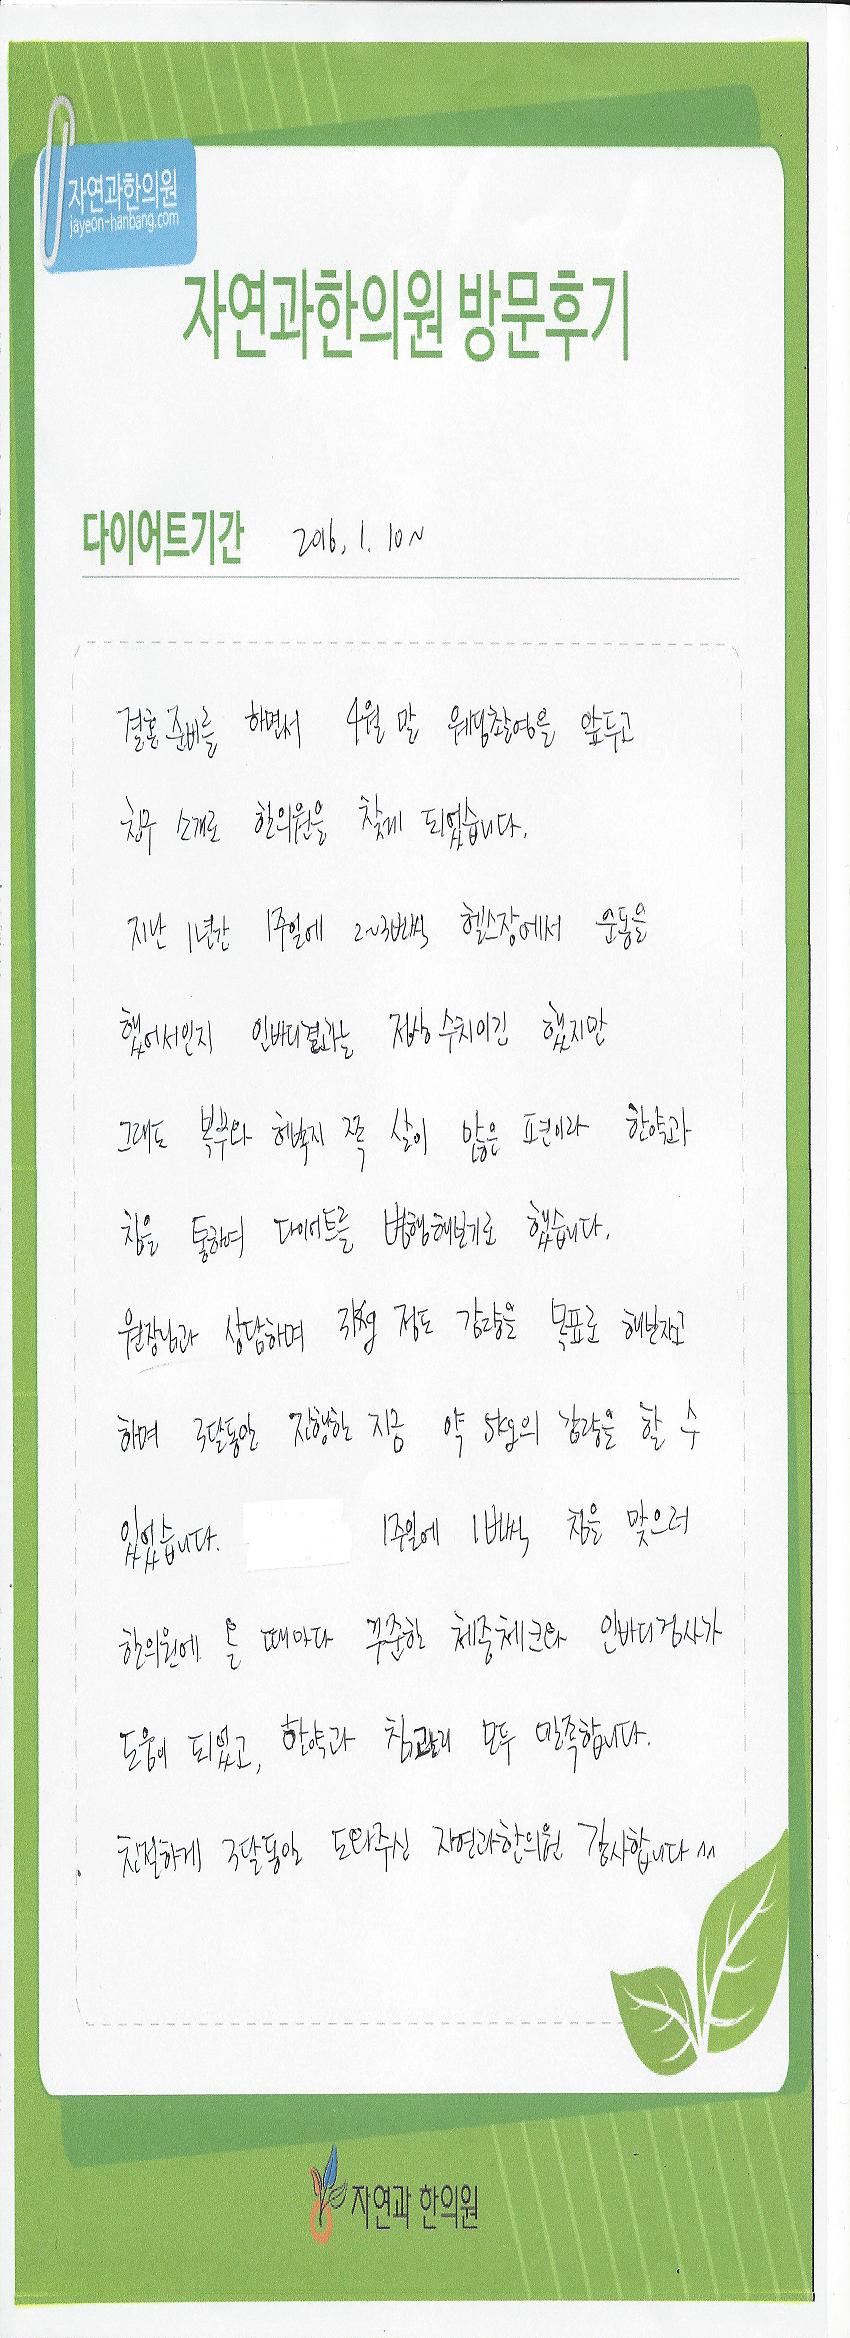 자연과한의원
jayeon-hanbang.com
자연과한의원 방문후기
다이어트기간 2016. 1. 10~
결혼 준비를 하면서 4월 말 웨딩촬영을 앞두고
친구 소개로 한의원을 찾게 되었습니다.
지난 1년간 1주일에 2~3번씩 헬스장에서 운동을
했어서인지 인바디결과는 정상 수치이긴 했지만
그래도 복부와 허벅지 쪽 살이 많은 표현이라 한약과
침을 통하여 다이어트를 병행해보기로 했습니다.
원장님과 상담하며 정도 감량을 목표로 해보자고
하며 3달동안 진행한 지금 약 5kg의 감량을 할 수
있었습니다. 1주일에 1번씩 침을 맞으러
한의원에 올 때마다 꾸준한 체중체크와 인바디검사가
도움이 되었고, 한약과 침관리 모두 만족합니다.
친절하게 3달동안 도와주신 자연과한의원 감사합니다 ^^
자연과 한의원